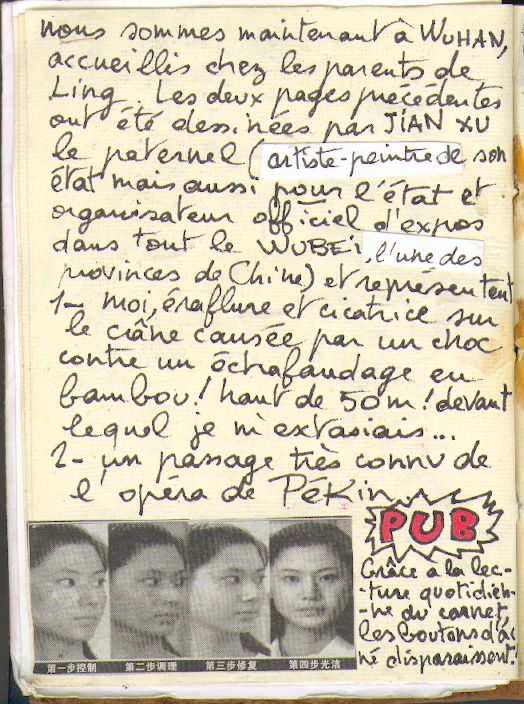 nous sommes maintenant à WUHAN,
accueillis chez les parents de
Ling. Les deux pages précédentes
ont été dessinées par JIAN XU
le paternel (artiste-peintre de son
état mais aussi pour l'état et
organisateur officiel d'expos
dans tout le WUBEI, l'une des
provinces de Chine) et représentent
1- moi, éraflure et cicatrice sur
le crâne causée par un choc
contre un échafaudage en
bambou! haut de 50m! devant
lequel je m'extasiais...
2- un passage très connu de
l'opéra de PéKin
PUB
Grâce à la lec-
-ture quotidien-
-ne du carnet,
les boutons d'ac
né disparaissent!
第一步控制 第二步调理 第三步修复 第四步光洁